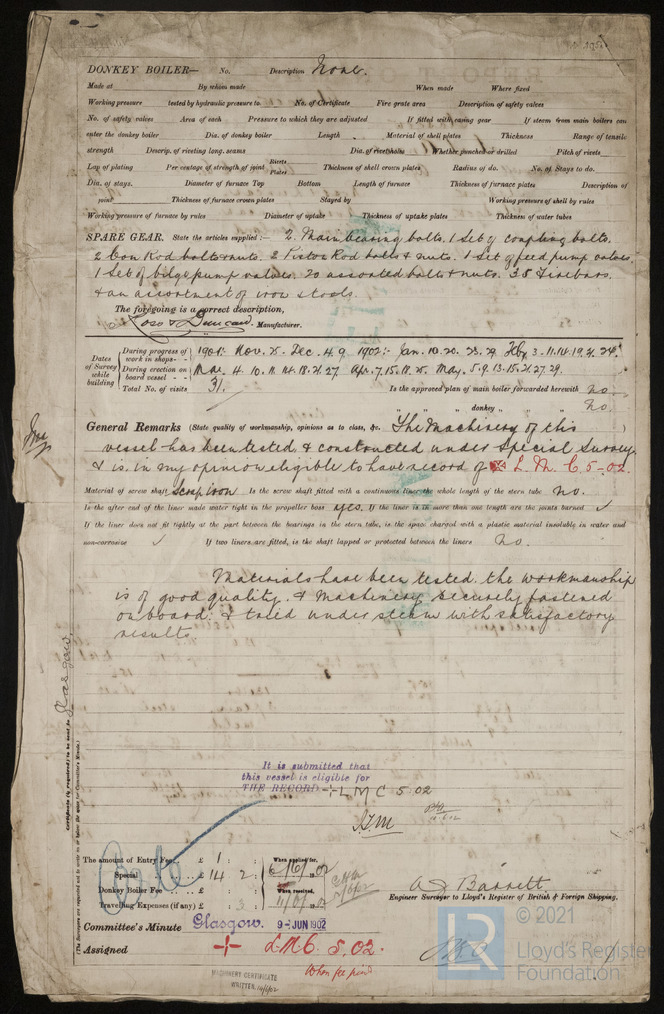 DONKEY BOILER— No. Description None.
Made at By whom made When made Where fixed
Working pressure tested by hydraulic pressure to No. of Certificate Fire grate area Description of safety valves
No. of safety valves Area of each Pressure to which they are adjusted If fitted with easing gear If steam from main boilers can
enter the donkey boiler Dia. of donkey boiler Length Material of shell plates Thickness Range of tensile
strength Descrip. of riveting long. seams Dia. of rivet holes Whether punched or drilled Pitch of rivets
Lap of plating Per centage of strength of joint Rivets Plates Thickness of shell crown plates Radius of do. No. of Stays to do.
Dia. of stays. Diameter of furnace Top Bottom Length of furnace Thickness of furnace plates Description of
joint Thickness of furnace crown plates Stayed by Working pressure of shell by rules
Working pressure of furnace by rules Diameter of uptake Thickness of uptake plates Thickness of water tubes
SPARE GEAR. State the articles supplied:— 2 Main bearing bolts. 1 Set of coupling bolts.
2 Con Rod bolts & nuts. 2 Piston Rod bolts & nuts. 1 Set of feed pump valves.
1 Set of bilge pump valves. 20 assorted bolts & nuts. 38 Firebars.
& an assortment of iron &
The foregoing is a correct description,
Ross & Duncan. Manufacturer.
Dates of Survey while building
During progress of work in shops - - 1901:- Nov. 25. Dec. 4. 9. 1902:- Jan. 10. 20. 23. 29. Feby 3. 11. 14. 19. 21. 24.
During erection on board vessel - - - Mar. 4. 10. 11. 14. 18. 21. 27. Apr. 7. 15. 18. 25. May. 5. 9. 13. 15. 21. 27. 29.
Total No. of visits 31. Is the approved plan of main boiler forwarded herewith no.
" " " donkey " " " no.
General Remarks (State quality of workmanship, opinions as to class, &c. The Machinery of this
vessel has been tested, & constructed under Special Survey,
& is, in my opinion eligible to have record of L. M. C. 5-02
Material of screw shaft Scrap iron Is the screw shaft fitted with a continuous liner the whole length of the stern tube no.
Is the after end of the liner made water tight in the propeller boss yes. If the liner is in more than one length are the joints burned ✓
If the liner does not fit tightly at the part between the bearings in the stern tube, is the space charged with a plastic material insoluble in water and
non-corrosive ✓ If two liners are fitted, is the shaft lapped or protected between the liners no.
Materials have been tested. the workmanship
is of good quality. & Machinery securely fastened
on board. & tried under steam with satisfactory
results.
Glasgow
Certificate (if required) to be sent to
(The Surveyors are requested not to write on or below the space for Committee's Minute.)
It is submitted that
this vessel is eligible for
THE RECORD + LMC 5.02
The amount of Entry Fee.. £ 1 : : When applied for,
Special .. .. £ 14 : 2 : 6/6/1902
Donkey Boiler Fee .. .. £ : : When received,
Travelling Expenses (if any) £ : 3 :
A. J. Barrett
Engineer Surveyor to Lloyd's Register of British & Foreign Shipping.
Committee's Minute Glasgow. 9-JUN 1902
Assigned + L.M.C. 5.02.
When fee paid
MACHINERY CERTIFICATE
WRITTEN
© 2021
Lloyd's Register
Foundation
LR